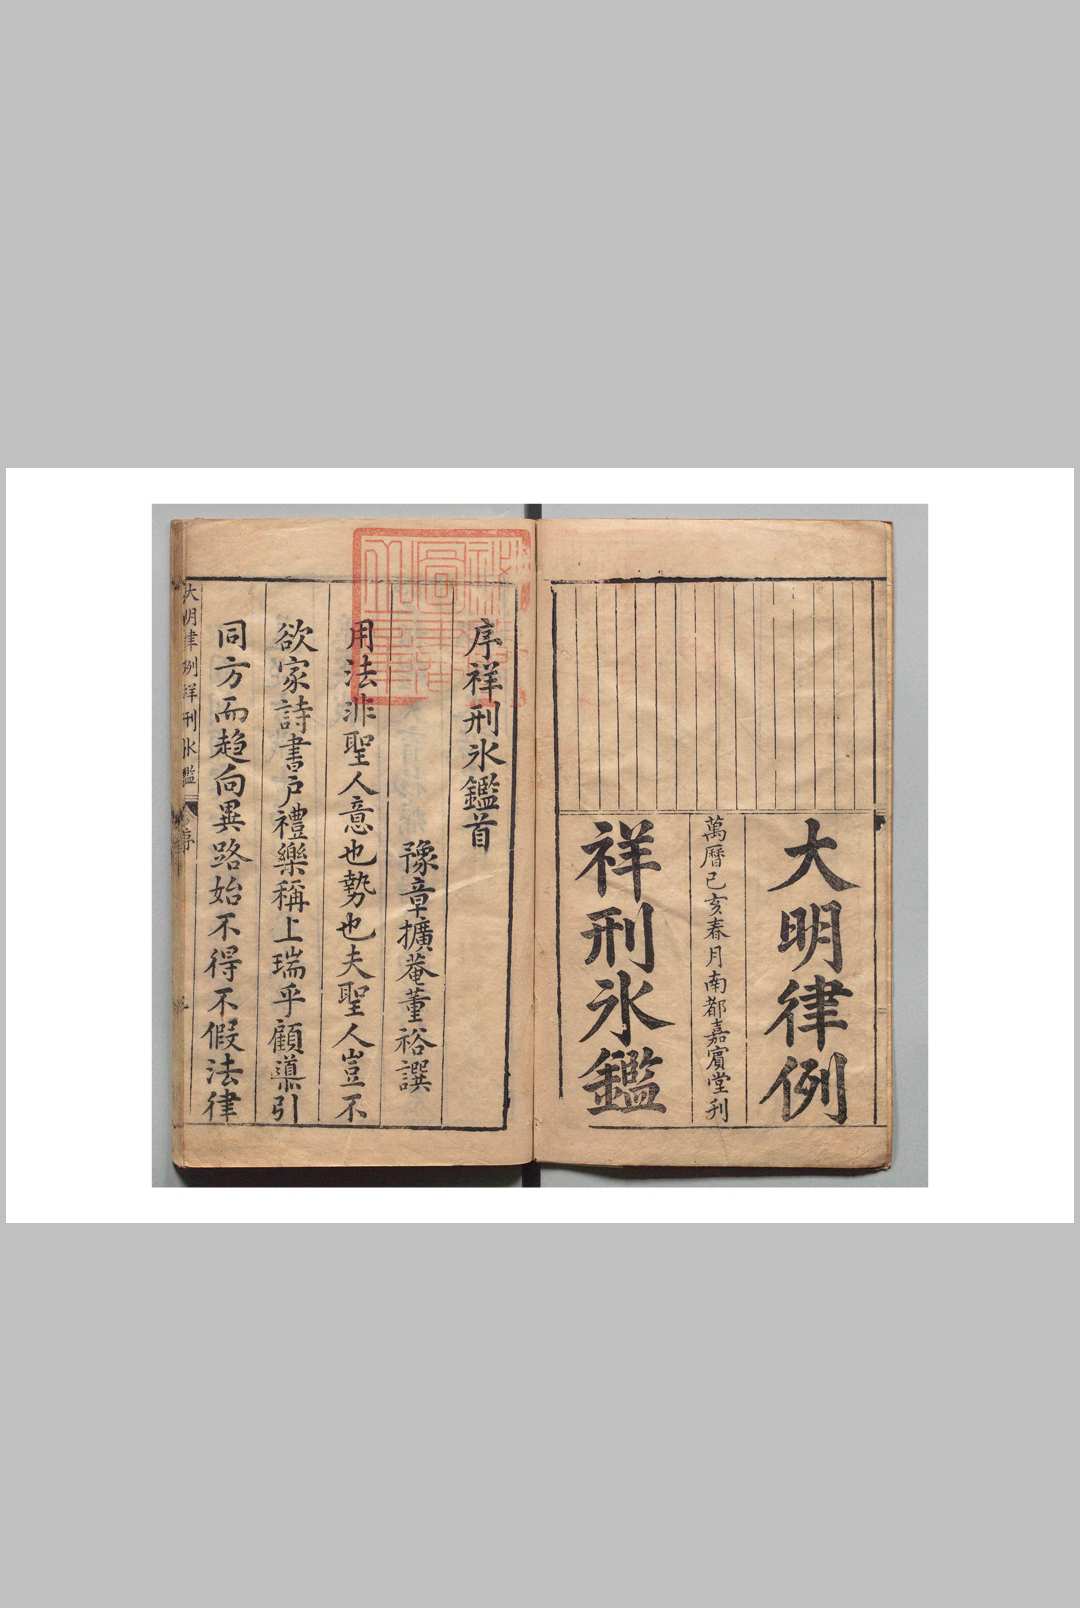 大明律例
萬曆己亥春月南都嘉賓堂刋
祥刑氷鑑
序祥刑氷鑑首
豫章擴菴董裕譔
用法非聖人意也勢也夫聖人豈不
欲家詩書戶禮樂稱上瑞乎顧導引
同方而趋向異路始不得不假法律
大明律例祥刑氷鑑
序